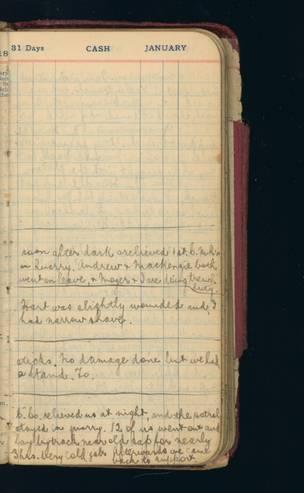 31 Days CASH JANUARY
soon after dark & relieved 1st. B.
in Quarry. Andrew & Mackenzie back
went on leave, & Moyes & I are doing
Hart was slightly wounded and I
had narrow shave.
decks. No damage done but we had
a stand. To.
B. Co. relieved us at night, and the patrol
stayed in quarry. 12 of us went out and
lay by track near old sap for nearly
3 hrs. Very cold job. Afterwards we came
back to support